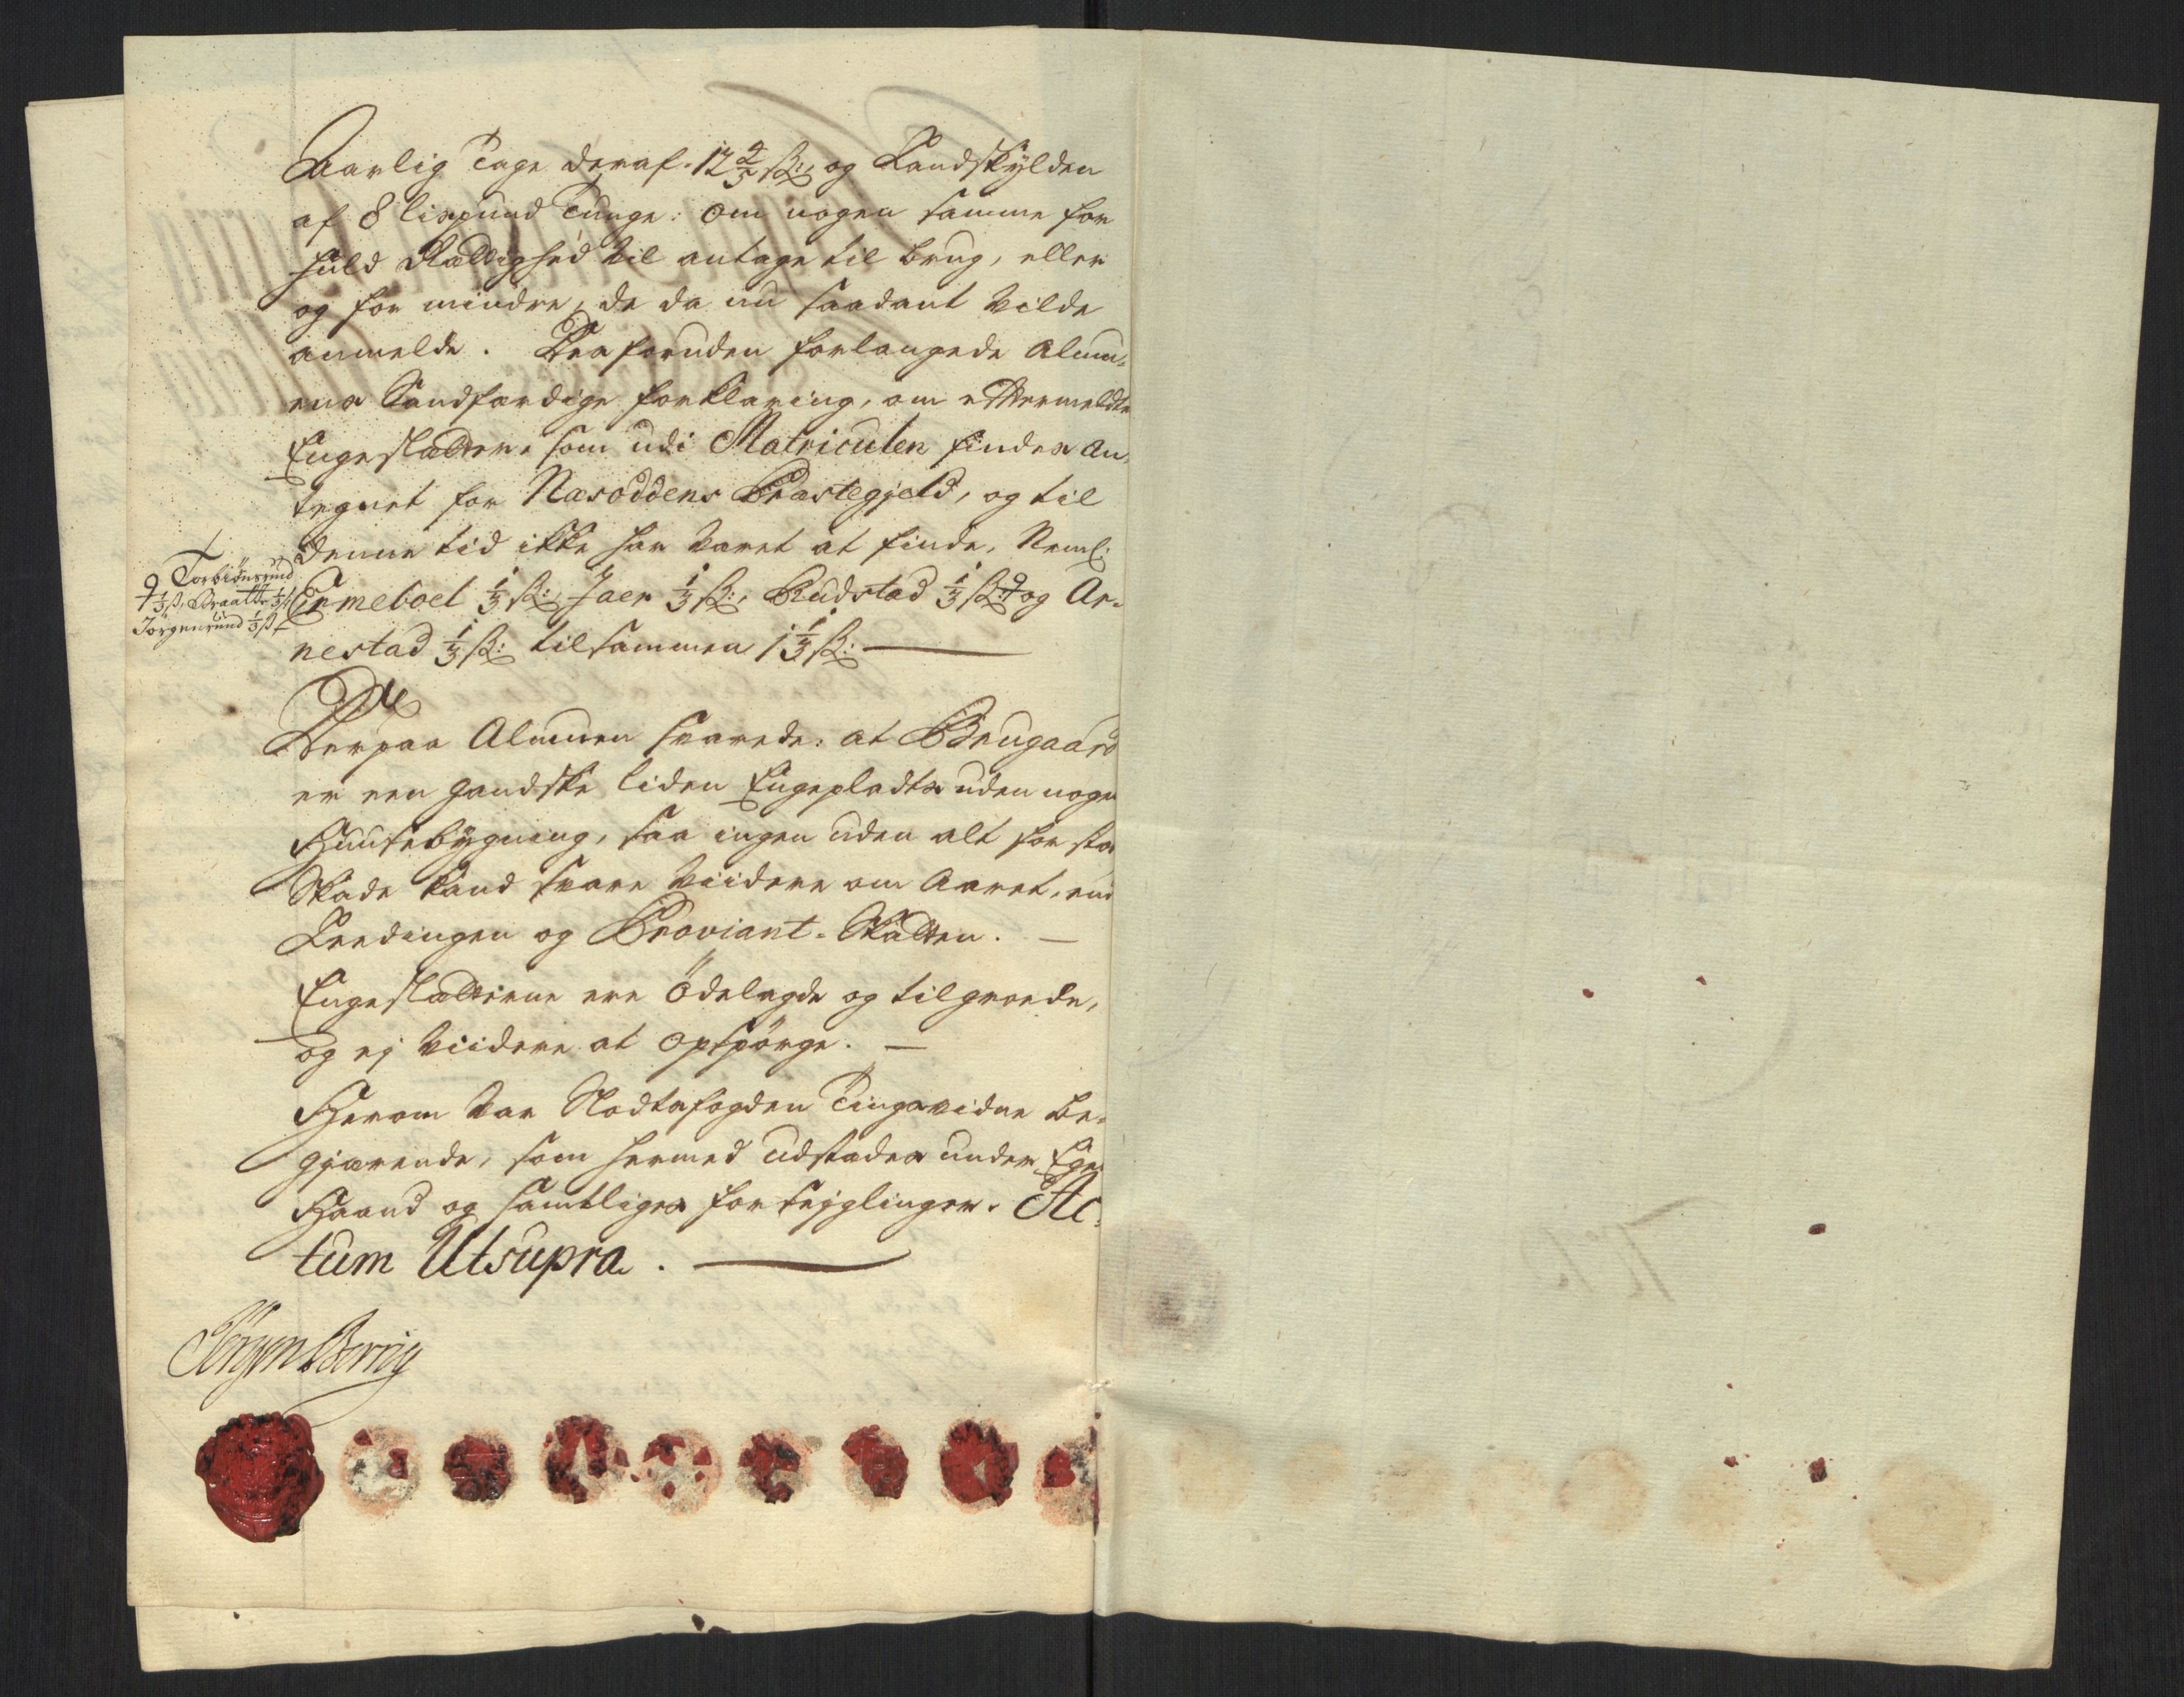 Aarlig Tage deraf. 12 2/5 ß:, og Landskylden
af 8 lispund Tunge: om nogen samme for
fuld Rættighed vil antage til brug, eller
og for mindre, de da nu saadant vilde
anmelde. Desforuden forlangede Almu,,
ens Sandfærdige forklaring, om eftermeldte
Engeslætter: som udi Matriculen findes an,,
tegnet for Næsoddens Præstegjeld, og til
denne tid ikke har varet at finde, Neml:
Emeboel 1/3 ß:, Jaer 1/3 ß:, Rudstad 1/3 ß: og Ar-
nestad 1/3 ß: tilsammen 1 1/3 ß:
Torbiønsrud
1/3 ß, Braatte 1/3 ß
Jörgensrud 1/3 ß
Derpaa Almuen svarede: at Brugaard
er een gandske liden Engeplads uden nogen
Huusebÿgning, saa ingen uden alt for stor
Skade kand svare viidere om Aaret, end
Leedingen og Proviant-Skatten. —
Engeslætterne ere ödelagde og tilgroede,
og ej viidere at opspörge. —
Herom var Slodtsfogden Tingsvidne be-
gjærende, som hermed udstædes under Egen
Haand og samtliges forseyglinger. Ac-
tum Utsupra. —
Jörgen Berrig